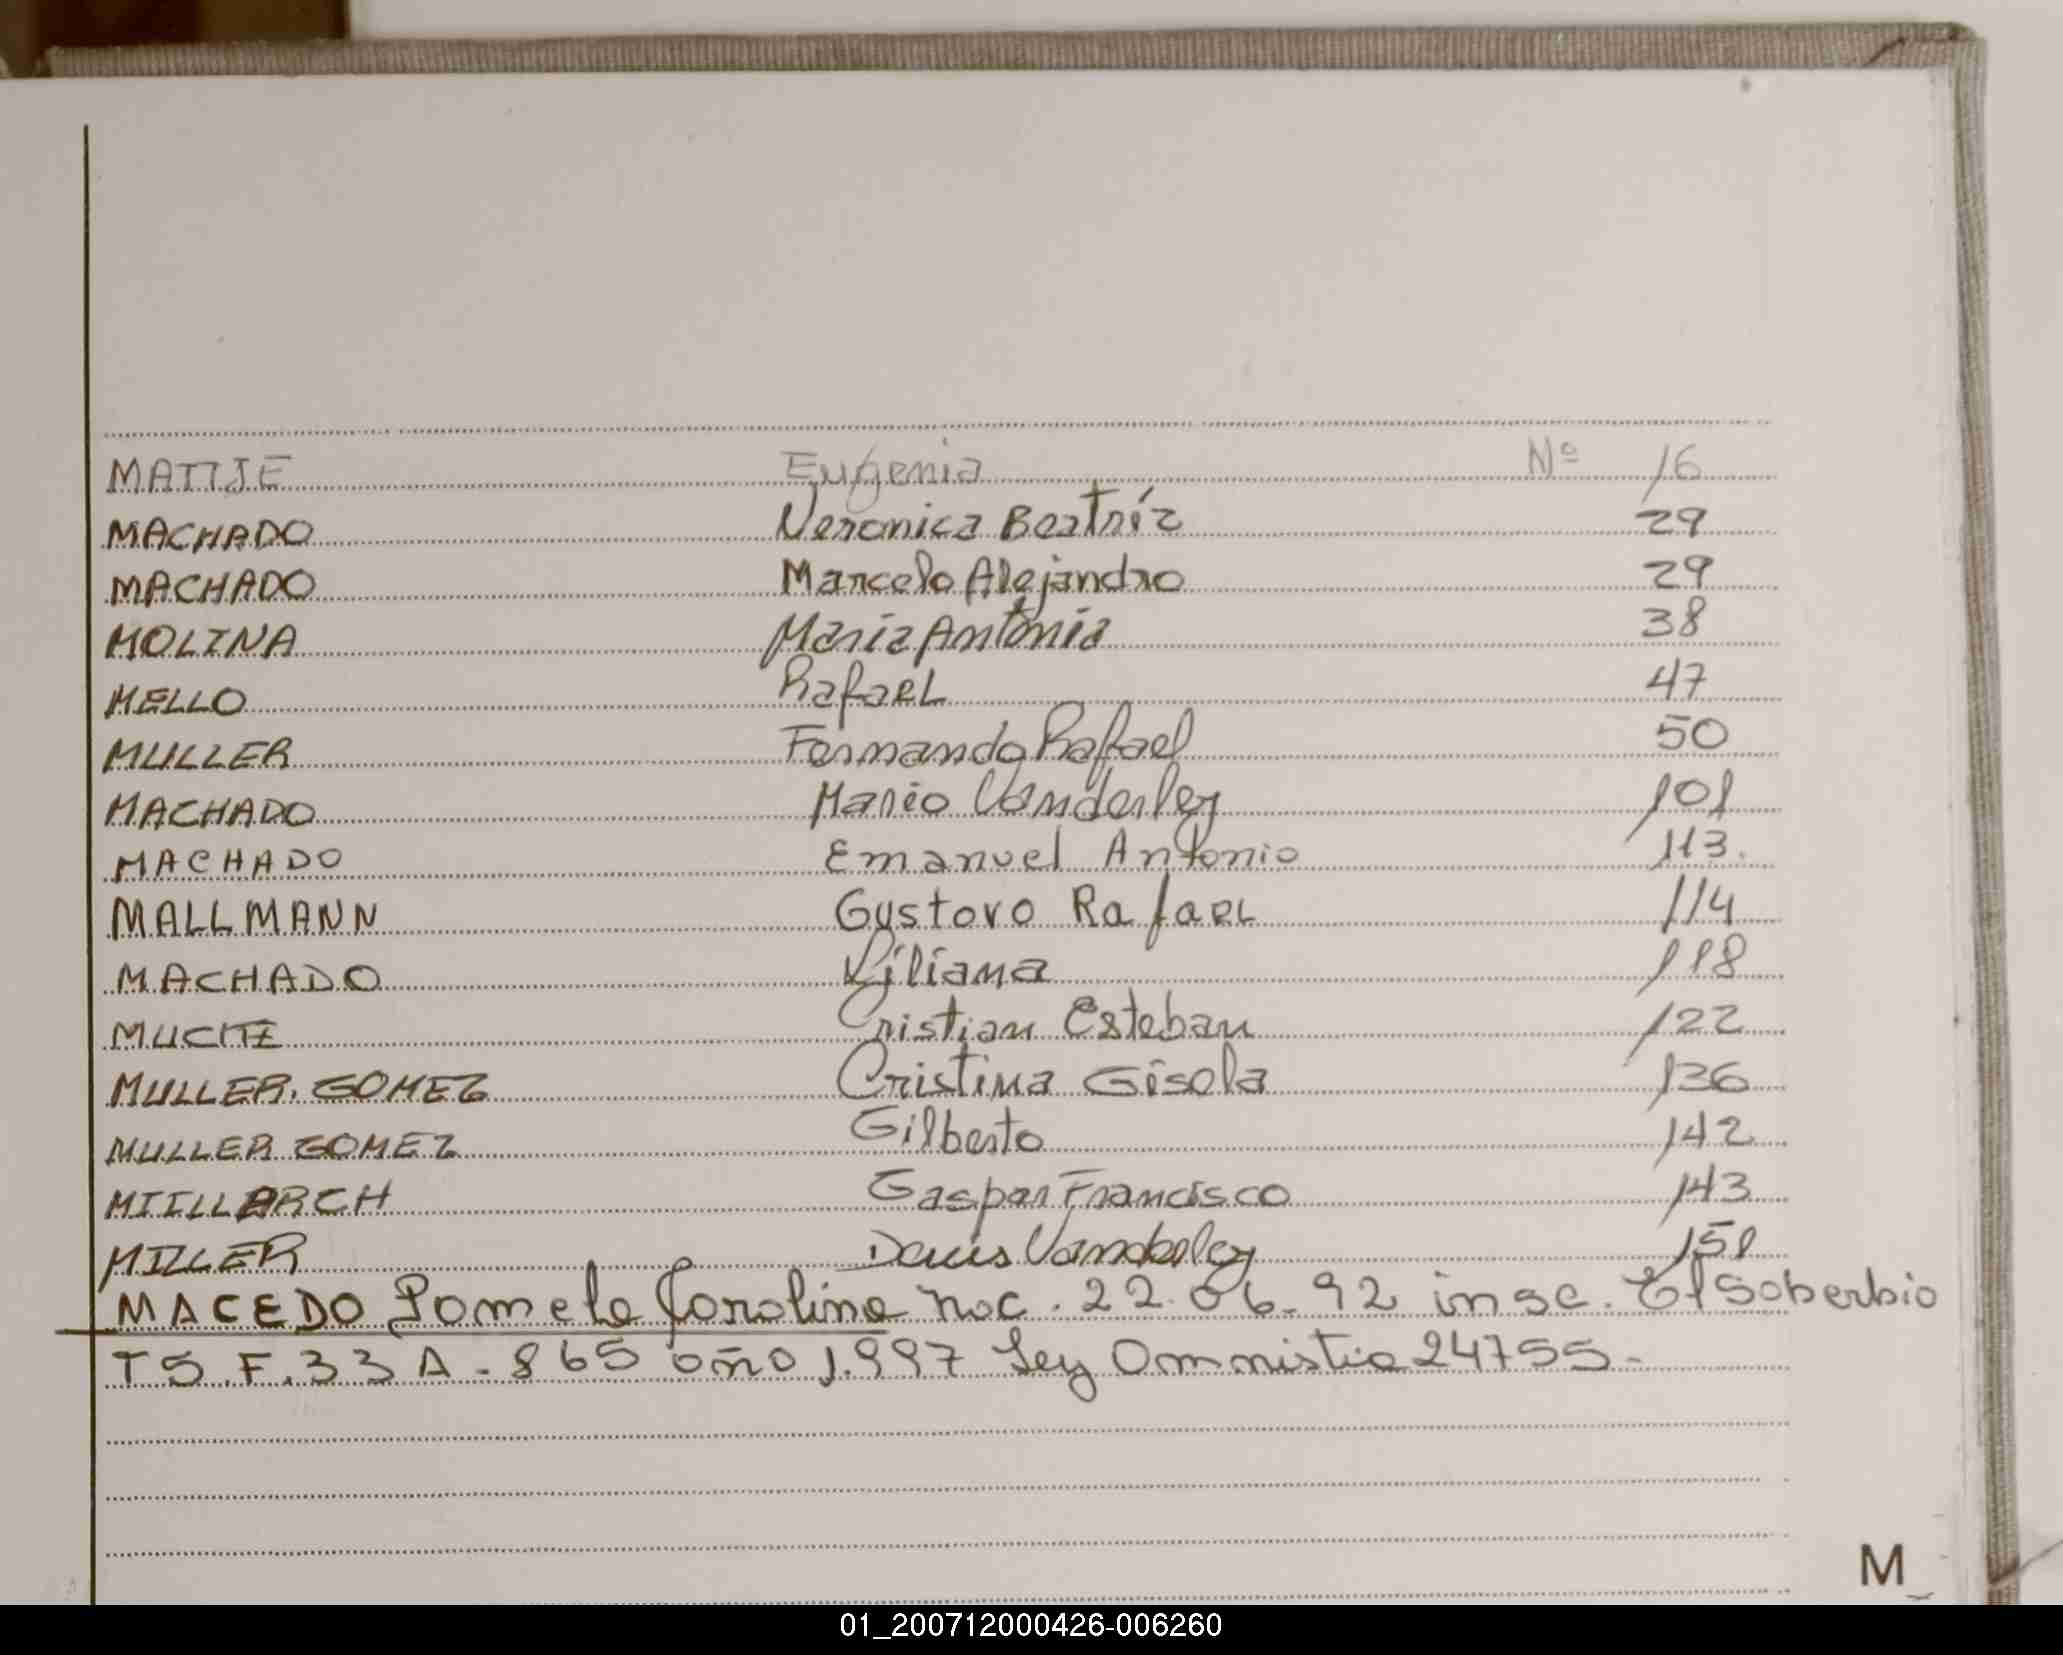 MATTJE Eugenia Nº 16
MACHADO Veronica Beatríz 29
MACHADO Marcelo Alejandro 29
MOLINA Maria Antonia 38
MELLO Rafael 47
MULLER Fernando Rafael 50
MACHADO Mario Vanderley 101
MACHADO Emanuel Antonio 113.
MALLMANN Gustavo Rafael 114
MACHADO Liliana 118
Cristian Esteban 122
MULLER. GOMEZ Cristina Gisela 136
MULLER GOMEZ Gilberto 142
Gaspar Francisco 143
MILLER 151
MACEDO Pamela Carolina nac. 22.06.92 insc. El Soberbio
T5.F.33 A-865 año 1.997 Ley Ammistia 24755-
M
01_200712000426-006260